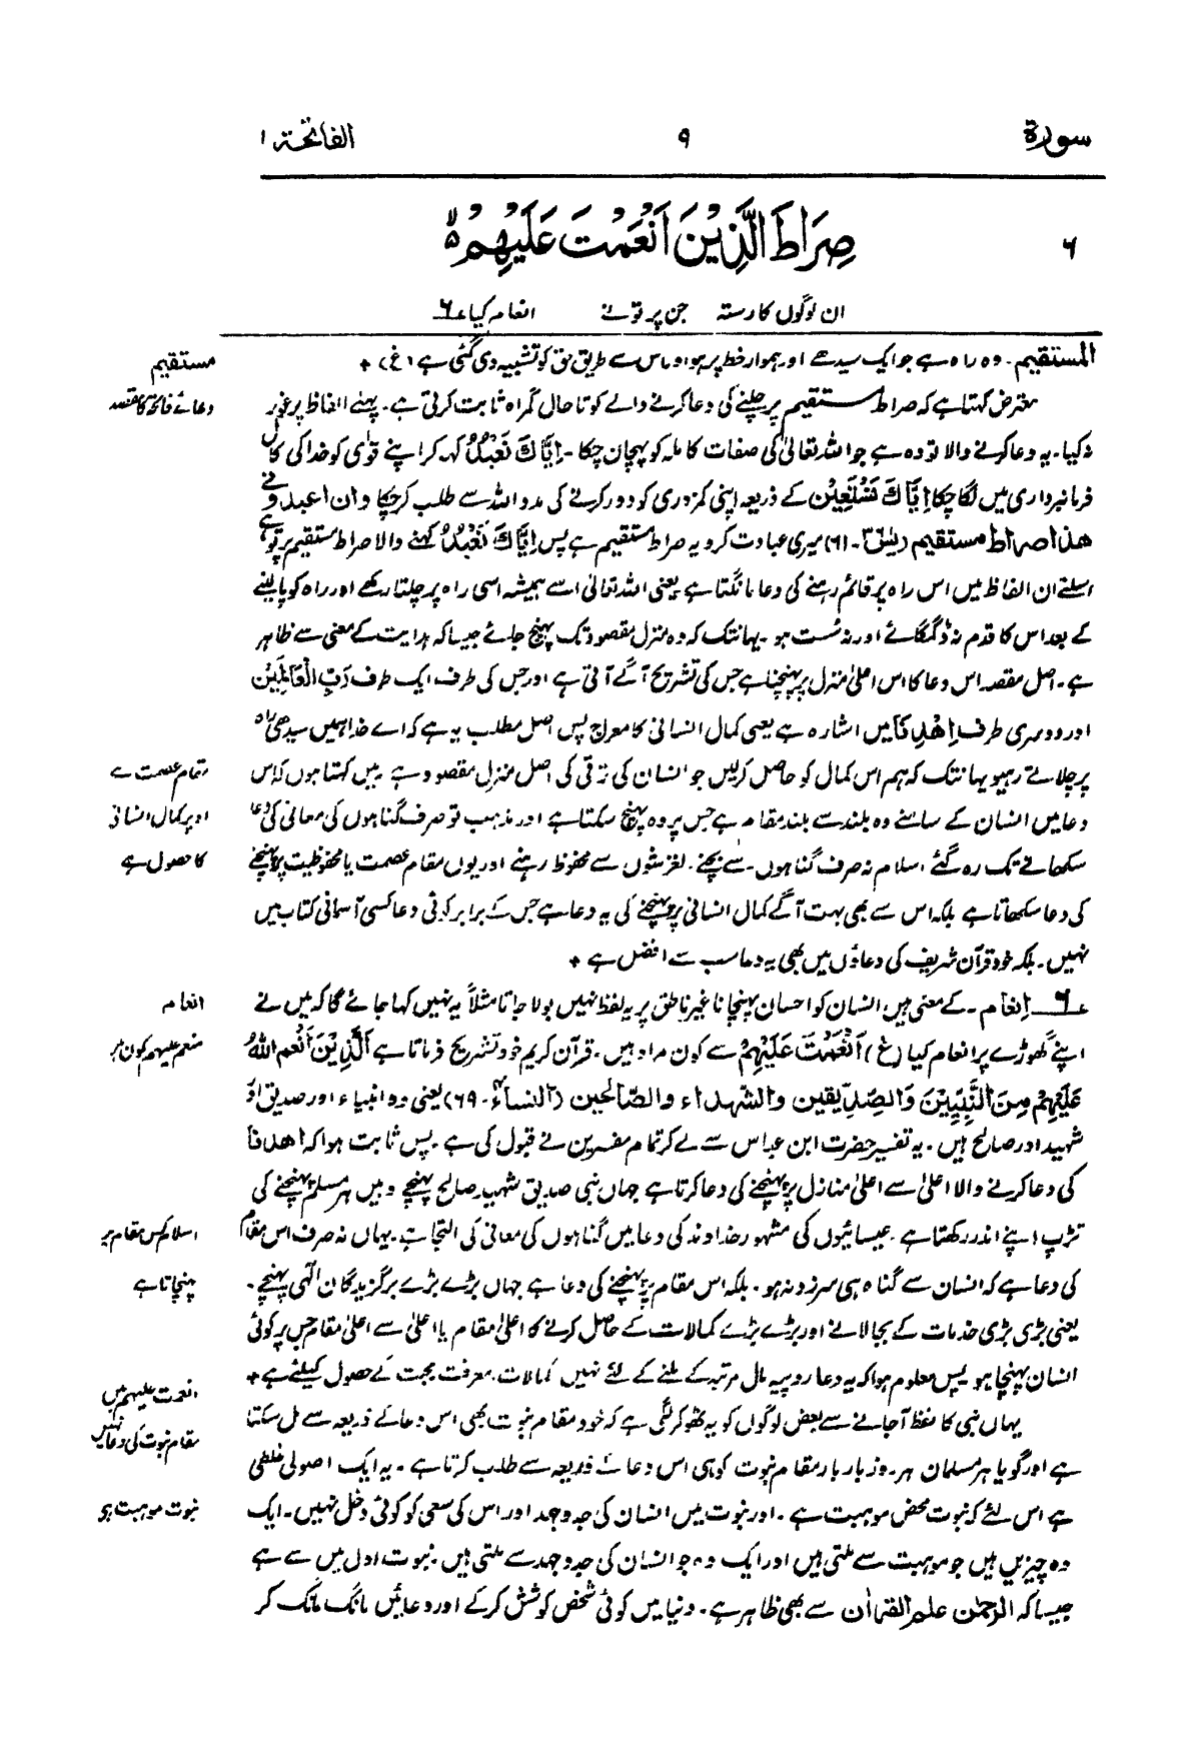 سورة ۹ الفاتحة ۱
صِرَاطَ الَّذِیْنَ اَنْعَمْتَ عَلَیْهِمْ ۵
۶
ان لوگوں کا رستہ جن پر تو نے انعام کیا ۶
المستقیم۔ وہ راہ ہے جو ایک سیدھے اور ہموار خط پر ہو اور اس سے طریق حق کو تشبیہ دی گئی ہے (غ) +
مستقیم
معترض کہتا ہے کہ صراط مستقیم پر چلنے کی دعا کرنے والے کو تا حال گمراہ ثابت کرتی ہے۔ پہلے الفاظ پر غور
دعائے فاتحہ کا مقصد
نہ کیا۔ یہ دعا کرنے والا تو وہ ہے جو اللہ تعالیٰ کی صفات کاملہ کو پہچان چکا۔ اِیَّاكَ نَعْبُدُ کہہ کر اپنے قوٰی کو خدا کی کامل
فرمانبرداری میں لگا چکا اِیَّاكَ نَسْتَعِیْن کے ذریعہ اپنی کمزوری کو دور کرنے کی مدد اللہ سے طلب کر چکا وان اعبدونی
هذا صراط مستقیم (یٰسٓ۔ ۶۱) میری عبادت کرو یہ صراط مستقیم ہے پس اِیَّاكَ نَعْبُدُ کہنے والا صراط مستقیم پر تو ہے
اسلئے ان الفاظ میں اس راہ پر قائم رہنے کی دعا مانگتا ہے یعنی اللہ تعالیٰ اسے ہمیشہ اسی راہ پر چلتا رکھے اور راہ کو پا لینے
کے بعد اس کا قدم نہ ڈگمگائے اور نہ سُست ہو۔ یہانتک کہ وہ منزل مقصود تک پہنچ جائے جیسا کہ ہدایت کے معنی سے ظاہر
ہے۔ اصل مقصد اس دعا کا اس اعلیٰ منزل پر پہنچنا ہے جس کی تشریح آگے آتی ہے اور جس کی طرف ایک طرف رَبِّ الْعَالَمِیْنَ
اور دوسری طرف اِهْدِنَا میں اشارہ ہے یعنی کمال انسانی کا معراج پس اصل مطلب یہ ہے کہ اے خدا ہمیں سیدھی راہ
پر چلاتے رہیو یہانتک کہ ہم اس کمال کو حاصل کر لیں جو انسان کی ترقی کی اصل منزل مقصود ہے۔ میں کہتا ہوں کہ اس
مقام عصمت سے
دعا میں انسان کے سامنے وہ بلند سے بلند مقام ہے جس پر وہ پہنچ سکتا ہے اور مذہب تو صرف گناہوں کی معافی کی دعا
اوپر کمال انسانی
سکھانے تک رہ گئے۔ اسلام نہ صرف گناہوں سے بچنے۔ لغزشوں سے محفوظ رہنے اور یوں مقام عصمت یا محفوظیت پر پہنچنے
کا حصول ہے
کی دعا سکھاتا ہے بلکہ اس سے بھی بہت آگے کمال انسانی پر پہنچنے کی یہ دعا ہے جس کے برابر کوئی دعا کسی آسمانی کتاب میں
نہیں۔ بلکہ خود قرآن شریف کی دعاؤں میں بھی یہ دعا سب سے افضل ہے +
۶ اِنعام۔ کے معنی ہیں انسان کو احسان پہنچانا غیر ناطق پر یہ لفظ نہیں بولا جاتا مثلاً یہ نہیں کہا جائے گا کہ میں نے
انعام
اپنے گھوڑے پر انعام کیا (غ) اَنْعَمْتَ عَلَیْهِمْ سے کون مراد ہیں۔ قرآن کریم خود تشریح فرماتا ہے اَلَّذِیْنَ اَنْعَمَ اللهُ
منعم علیہم کون ہیں
عَلَیْهِمْ مِنَ النَّبِیِّیْنَ وَالصِّدِّیْقین والشهداء والصّالحین (النساء۔ ۶۹) یعنی وہ انبیاء اور صدیق اور
شہید اور صالح ہیں۔ یہ تفسیر حضرت ابن عباس سے لے کر تمام مفسرین نے قبول کی ہے۔ پس ثابت ہوا کہ اهدنا
کی دعا کرنے والا اعلیٰ سے اعلیٰ منازل پر پہنچنے کی دعا کرتا ہے جہاں نبی صدیق شہید صالح پہنچے وہیں ہر مسلم پہنچنے کی
تڑپ اپنے اندر رکھتا ہے۔ عیسائیوں کی مشہور خداوند کی دعا میں گناہوں کی معافی کی التجا ہے۔ یہاں نہ صرف اس مقام
اسلام کس مقام پر
کی دعا ہے کہ انسان سے گناہ ہی سرزد نہ ہو۔ بلکہ اس مقام پر پہنچنے کی دعا ہے جہاں بڑے بڑے برگزیدگان الٰہی پہنچے۔
پہنچاتا ہے
یعنی بڑی بڑی خدمات کے بجا لانے اور بڑے بڑے کمالات کے حاصل کرنے کا اعلیٰ مقام یا اعلیٰ سے اعلیٰ مقام جس پر کوئی
انسان پہنچا ہو پس معلوم ہوا کہ یہ دعا روپیہ مال مرتبہ کے ملنے کے لئے نہیں کمالات۔ معرفت محبت کے حصول کیلئے ہے +
انعمت علیہم میں
یہاں نبی کا لفظ آ جانے سے بعض لوگوں کو یہ ٹھوکر لگی ہے کہ خود مقام نبوت بھی اس دعا کے ذریعہ سے مل سکتا
مقام نبوت کی دعا نہیں
ہے اور گویا ہر مسلمان ہر روز بار بار مقام نبوت کو ہی اس دعا کے ذریعہ سے طلب کرتا ہے۔ یہ ایک اصولی غلطی
ہے اس لئے کہ نبوت محض موہبت ہے۔ اور نبوت میں انسان کی جدوجہد اور اس کی سعی کو کوئی دخل نہیں۔ ایک
نبوت موہبت ہے
وہ چیزیں ہیں جو موہبت سے ملتی ہیں اور ایک وہ جو انسان کی جدوجہد سے ملتی ہیں۔ نبوت اول میں سے ہے
جیسا کہ الرحمٰن علم القراٰن سے بھی ظاہر ہے۔ دنیا میں کوئی شخص کوشش کرکے اور دعائیں مانگ مانگ کر